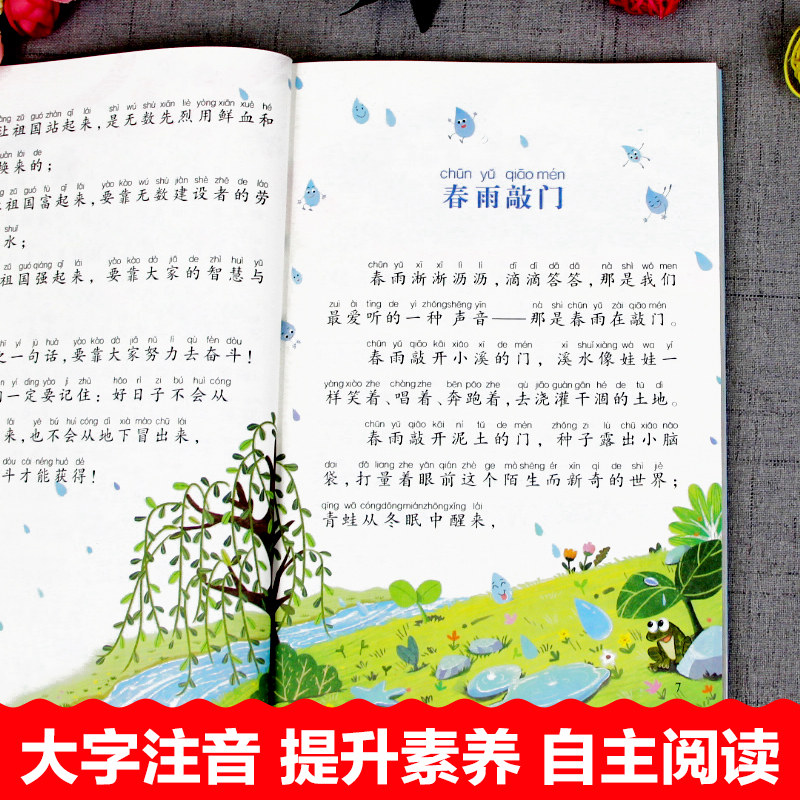 zǔ guó zhàn qǐ lái shì wú shù xiān liè yòng xiān xuè hé
让祖国站起来,是无数先烈用鲜血和
lái de
换来的;
zǔ guó fù qǐ lái yào kào wú shù jiàn shè zhě de láo
祖国富起来,要靠无数建设者的劳
shuǐ
水;
zǔ guó qiáng qǐ lái yào kào dà jiā de zhì huì yǔ
祖国强起来,要靠大家的智慧与
yí jù huà yào kào dà jiā nǔ lì qù fèn dòu
之一句话,要靠大家努力去奋斗!
yí dìng yào jì zhù hǎo rì zi bú huì cóng
们一定要记住:好日子不会从
lái yě bú huì cóng dì xià mào chū lái
来,也不会从地下冒出来,
dòu cái néng huò dé
斗才能获得!
chūn yǔ qiāo mén
春雨敲门
chūn yǔ xī xī lì lì dī dī dā dā nà shì wǒ men
春雨淅淅沥沥,滴滴答答,那是我们
zuì ài tīng de yì zhǒng shēng yīn nà shì chūn yǔ zài qiāo mén
最爱听的一种声音——那是春雨在敲门。
chūn yǔ qiāo kāi xiǎo xī de mén xī shuǐ xiàng wá wa yí
春雨敲开小溪的门,溪水像娃娃一
yàng xiào zhe chàng zhe bēn pǎo zhe qù jiāo guàn gān hé de tǔ dì
样笑着、唱着、奔跑着,去浇灌干涸的土地。
chūn yǔ qiāo kāi ní tǔ de mén zhǒng zi lù chū xiǎo nǎo
春雨敲开泥土的门,种子露出小脑
dai dǎ liang zhe yǎn qián zhè ge mò shēng ér xīn qí de shì jiè
袋,打量着眼前这个陌生而新奇的世界;
qīng wā cóng dōng mián zhōng xǐng lái
青蛙从冬眠中醒来,
7
大字注音 提升素养 自主阅读